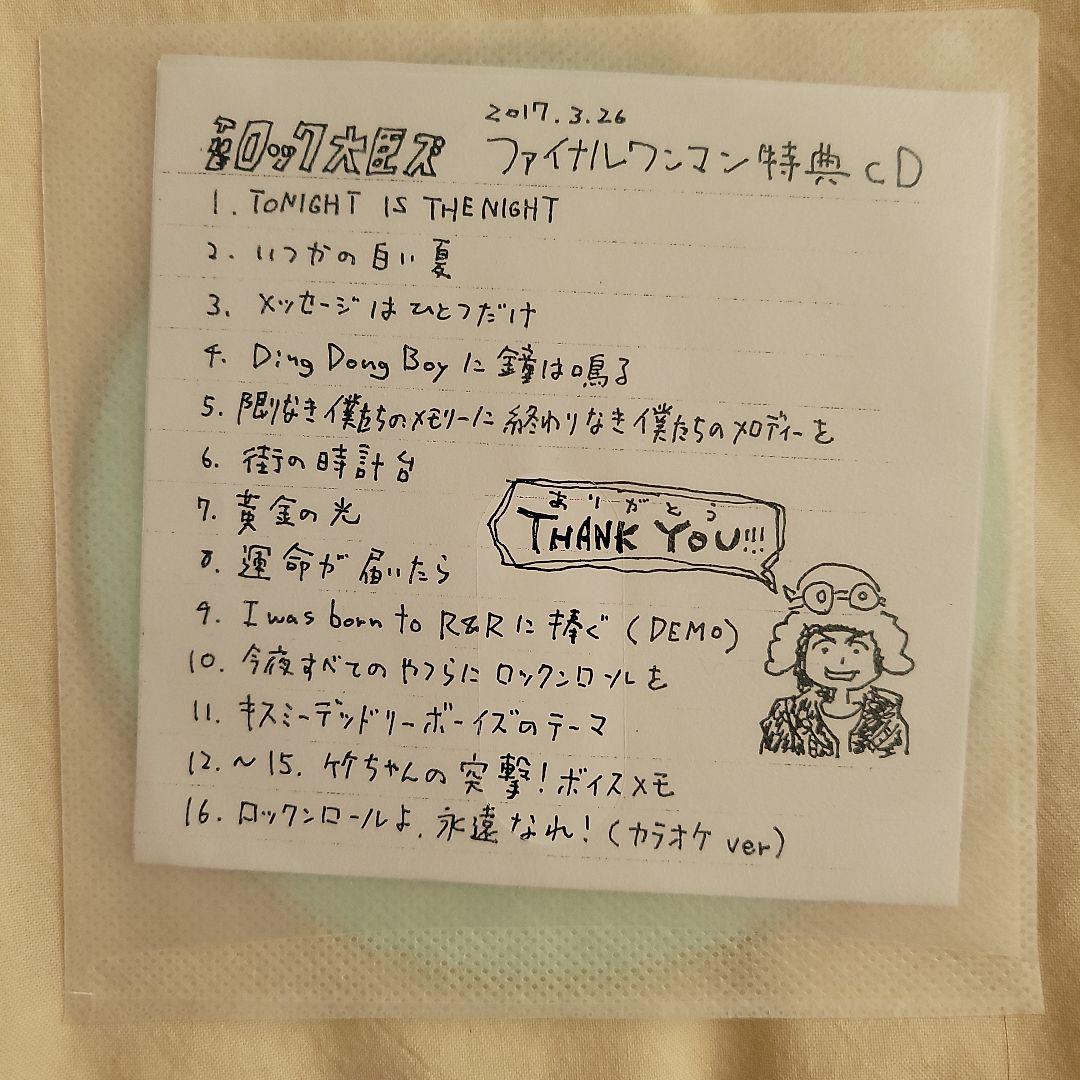 2017.3.26
THEロック大臣ズ ファイナルワンマン特典CD
1. TONIGHT IS THE NIGHT
2. いつかの白い夏
3. メッセージはひとつだけ
4. Ding Dong Boyに鐘は鳴る
5. 限りなき僕たちのメモリーに終わりなき僕たちのメロディーを
6. 街の時計台
7. 黄金の光
8. 運命が届いたら
9. I was born to R&Rに捧ぐ (DEMO)
10. 今夜すべてのやつらにロックンロールを
11. キスミーデッドリーボーイズのテーマ
12.〜15. 竹ちゃんの突撃!ボイスメモ
16. ロックンロールよ、永遠なれ!(カラオケver)
ありがとう
THANK YOU!!!